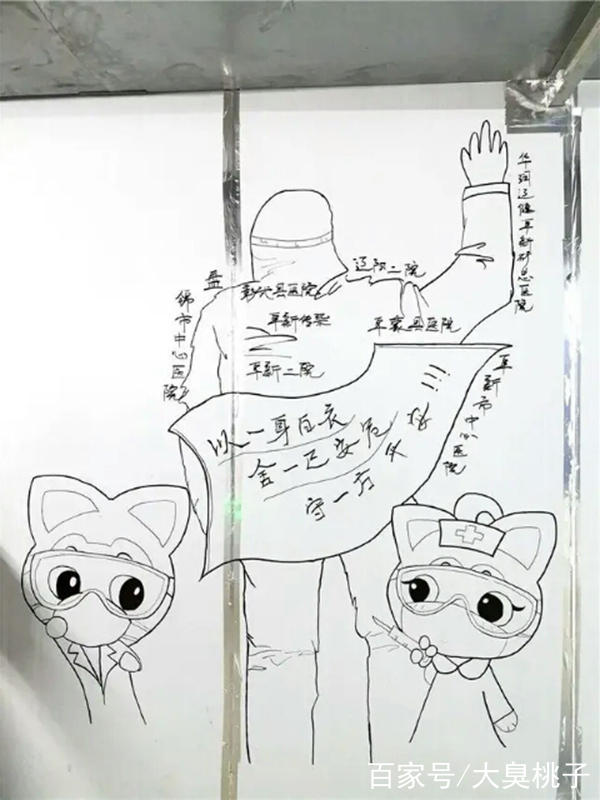 华润辽健阜新矿总医院
辽阳二院
盘
锦市中心医院
彰武县医院
阜新传染
阜蒙县医院
阜新二院
阜新市中心医院
以一身白衣
舍一己安危
守一方
!!!
百家号/大臭桃子